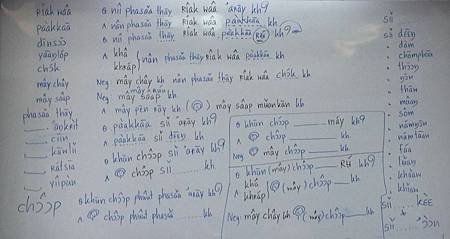 riak wâa
paakkaa
dinsɔ̌ɔ
yaaŋlóp
chɔ́k
mây chây
mây sâap
phasǎa thay
aŋkrìt
ciin
kawlǐi
rátsia
yîipùn
chɔ̂ɔp
Q nîi phasǎa thay riak wâa ʼaray kh?
A nân phasǎa thay riak wâa paakkaa kh
Q nîi phasǎa thay riak wâa paakkaa rɯ́ kh?
A khâ
khráp
nân phasǎa thay riak wâa paakkaa kh
Neg mây chây kh nân phasǎa thay riak wâa chɔ́k kh
Neg mây sâap kh
A mây pen ray kh mây sâap mǔankan kh
Q paakkaa sǐi ʼaray kh?
A paakkaa sǐi dɛɛŋ kh
Q khun chɔ̂ɔp sǐi ʼaray kh?
A chɔ̂ɔp sǐi kh
Q khun chɔ̂ɔp phûut phasǎa ʼaray kh?
A chɔ̂ɔp phûut phasǎa kh
Q khun chɔ̂ɔp máy kh?
A chɔ̂ɔp kh
Neg mây chɔ̂ɔp kh
Q khun (mây) chɔ̂ɔp rɯ́ kh?
A khâ
khráp
(mây) chɔ̂ɔp kh
Neg mây chây kh (mây) chɔ̂ɔp kh
sǐi
dɛɛŋ
dam
chomphuu
thɔɔŋ
ŋən
thaw
mûaŋ
sôm
námŋən
námtaan
fáa
lǔaŋ
khǐaw
khǎaw
sǐi kɛ̀ɛ
sǐi ʼɔ̀ɔn